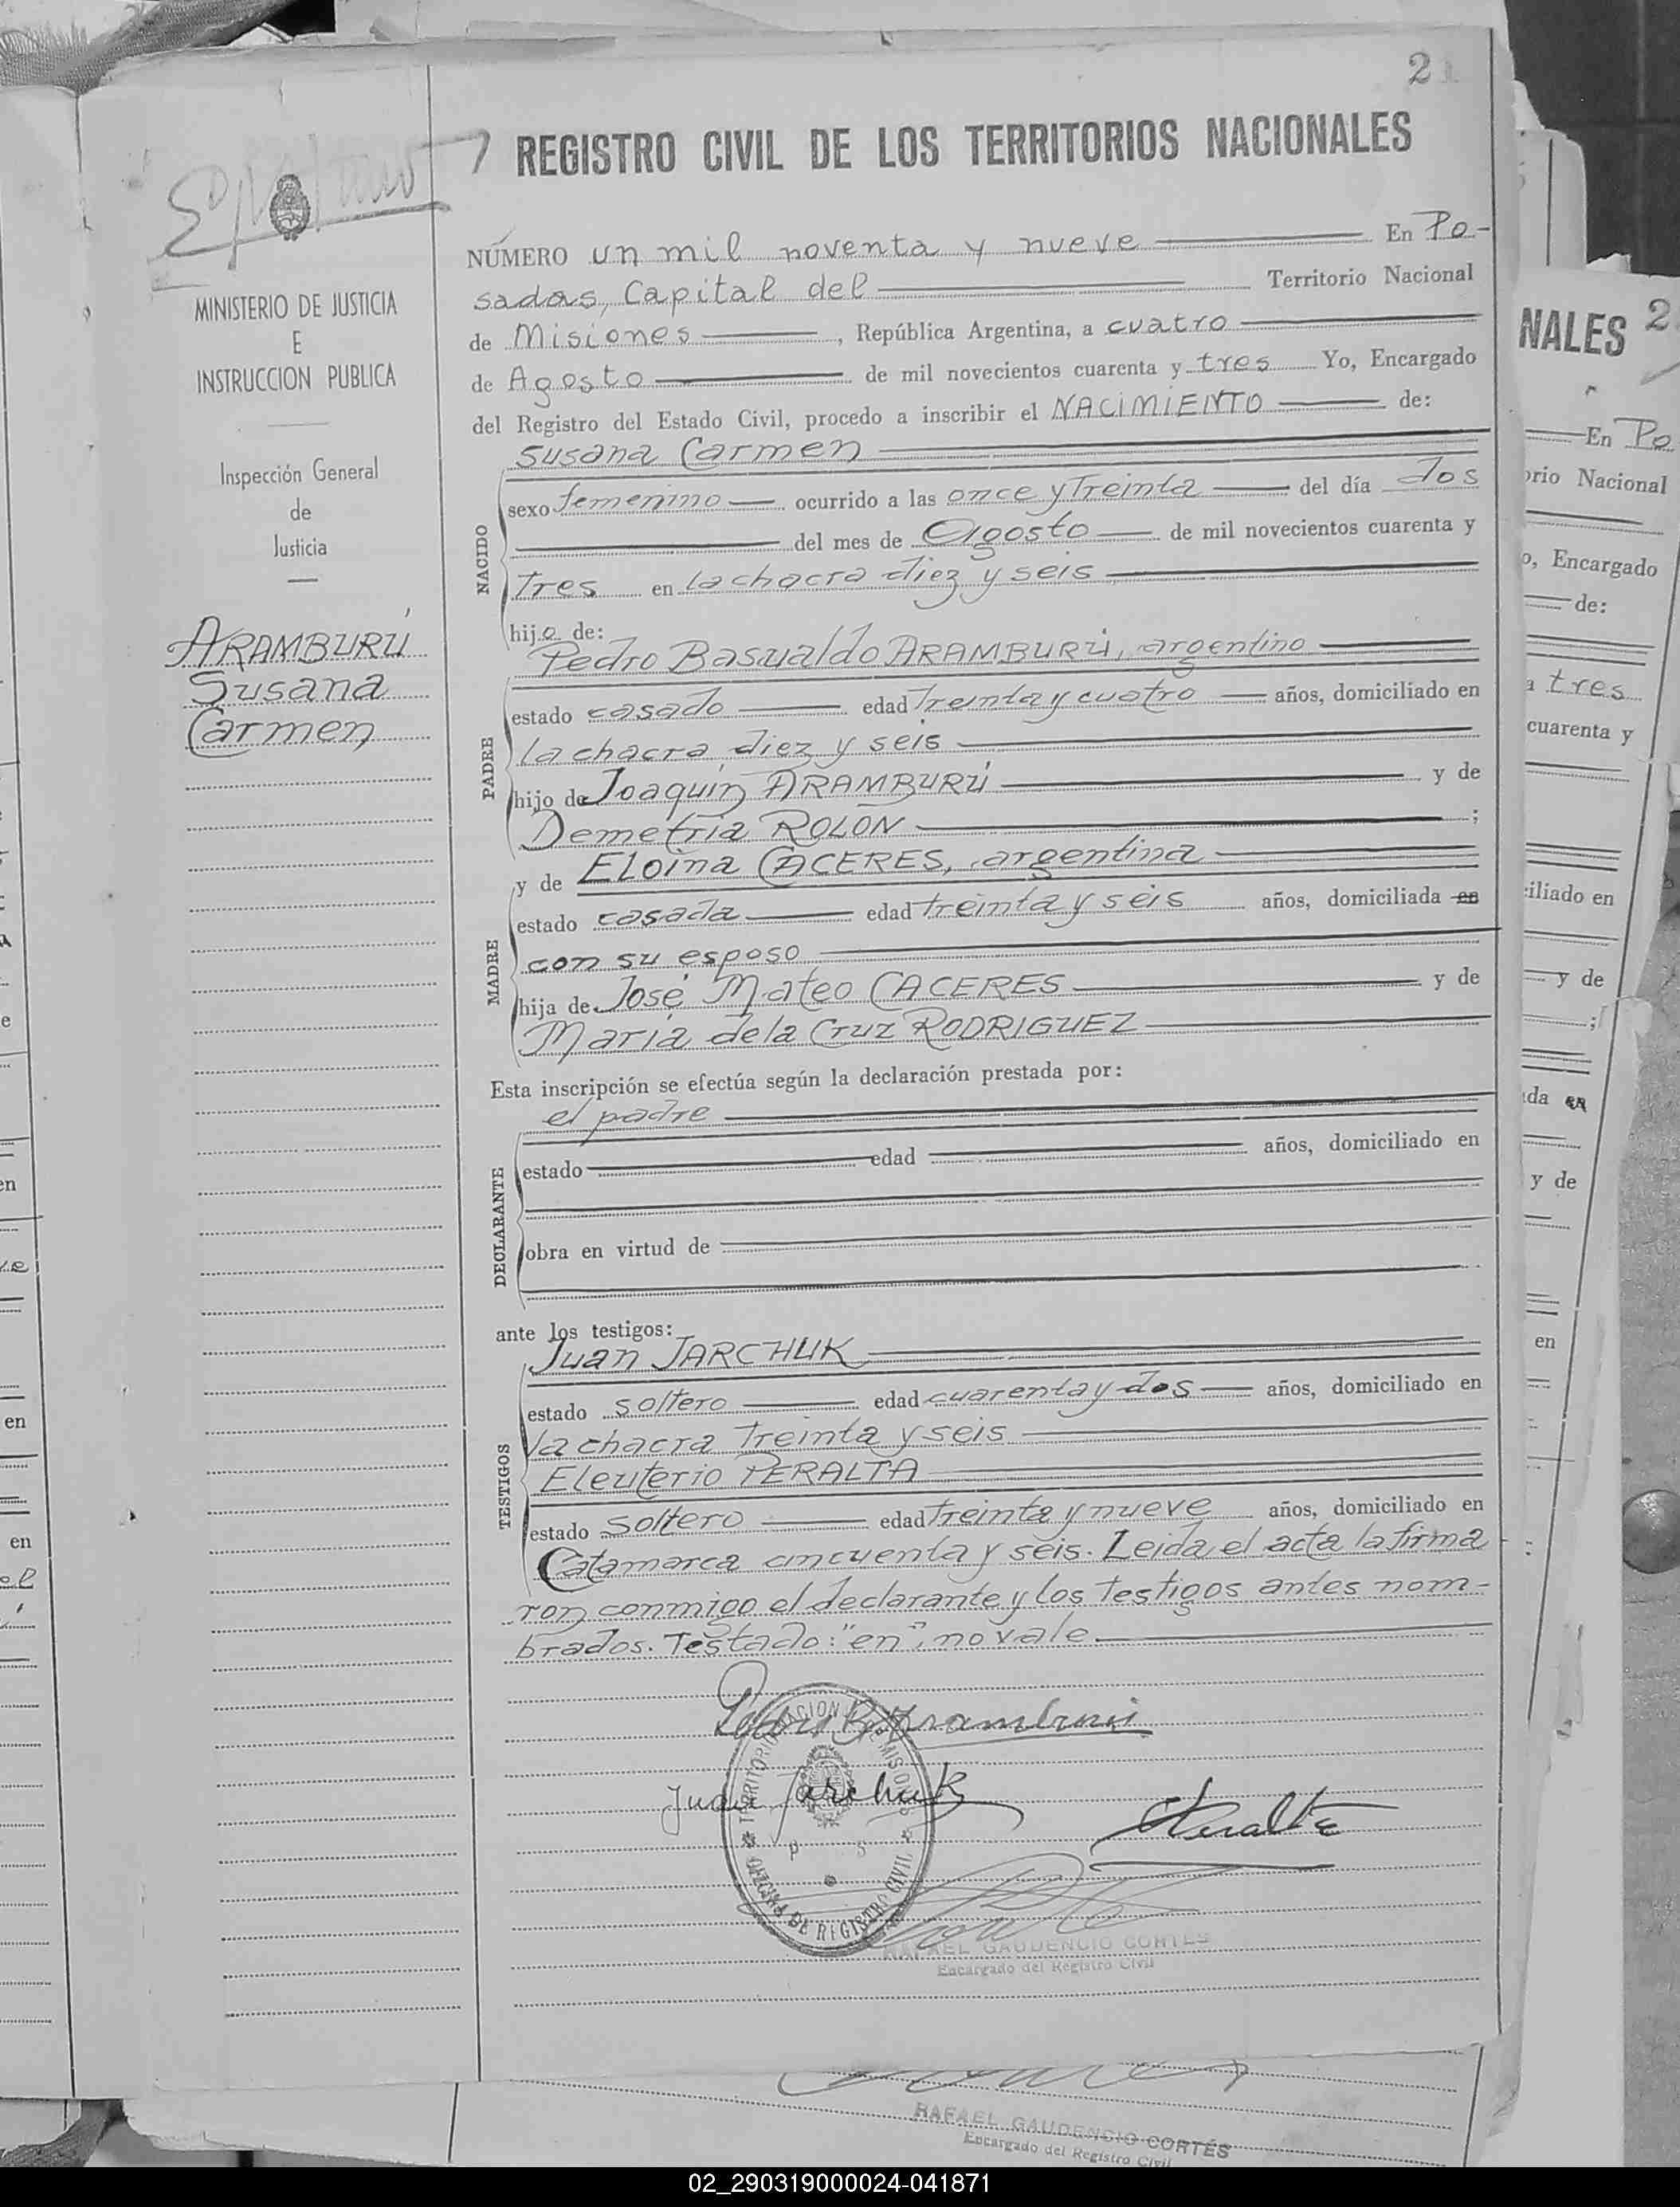 2
REGISTRO CIVIL DE LOS TERRITORIOS NACIONALES
MINISTERIO DE JUSTICIA
E
INSTRUCCION PUBLICA
Inspección General
de
Justicia
ARAMBURÚ
Susana
Carmen
NÚMERO un mil noventa y nueve En Po-
sadas, Capital del Territorio Nacional
de Misiones, República Argentina, a cuatro
de Agosto de mil novecientos cuarenta y tres Yo, Encargado
del Registro del Estado Civil, procedo a inscribir el NACIMIENTO de:
NACIDO
Susana Carmen
sexo femenino ocurrido a las once y Treinta del día dos
del mes de Agosto de mil novecientos cuarenta y
Tres en la chacra diez y seis
hija de:
PADRE
Pedro Basualdo ARAMBURÚ, argentino
estado casado edad Treinta y cuatro años, domiciliado en
la chacra diez y seis
hijo de Joaquín ARAMBURÚ y de
Demetria ROLON ;
MADRE
y de ELoina CACERES, argentina
estado casada edad treinta y seis años, domiciliada en
con su esposo
hija de José Mateo CACERES y de
María de la Cruz RODRIGUEZ
Esta inscripción se efectúa según la declaración prestada por:
DECLARANTE
el padre
estado edad años, domiciliado en
obra en virtud de
ante los testigos:
TESTIGOS
Juan JARCHUK
estado soltero edad cuarenta y dos años, domiciliado en
la chacra Treinta y seis
Eleuterio PERALTA
estado soltero edad Treinta y nueve años, domiciliado en
Catamarca cincuenta y seis. Leida el acta la firma
ron conmigo el declarante y los Testigos antes nom-
brados. Testado: "en", no vale.
Pedro B. Aramburú
Juan Jarchuk
Peralta
TERRITORIO NACIONAL MISIONES
P S
OFICINA DE REGISTRO CIVIL
RAFAEL GAUDENCIO CORTÉS
Encargado del Registro Civil
RAFAEL GAUDENCIO CORTÉS
Encargado del Registro Civil
NALES 2
En Po
orio Nacional
o, Encargado
de:
tres
cuarenta y
iliado en
y de
;
da en
y de
en
en
en
02_290319000024-041871